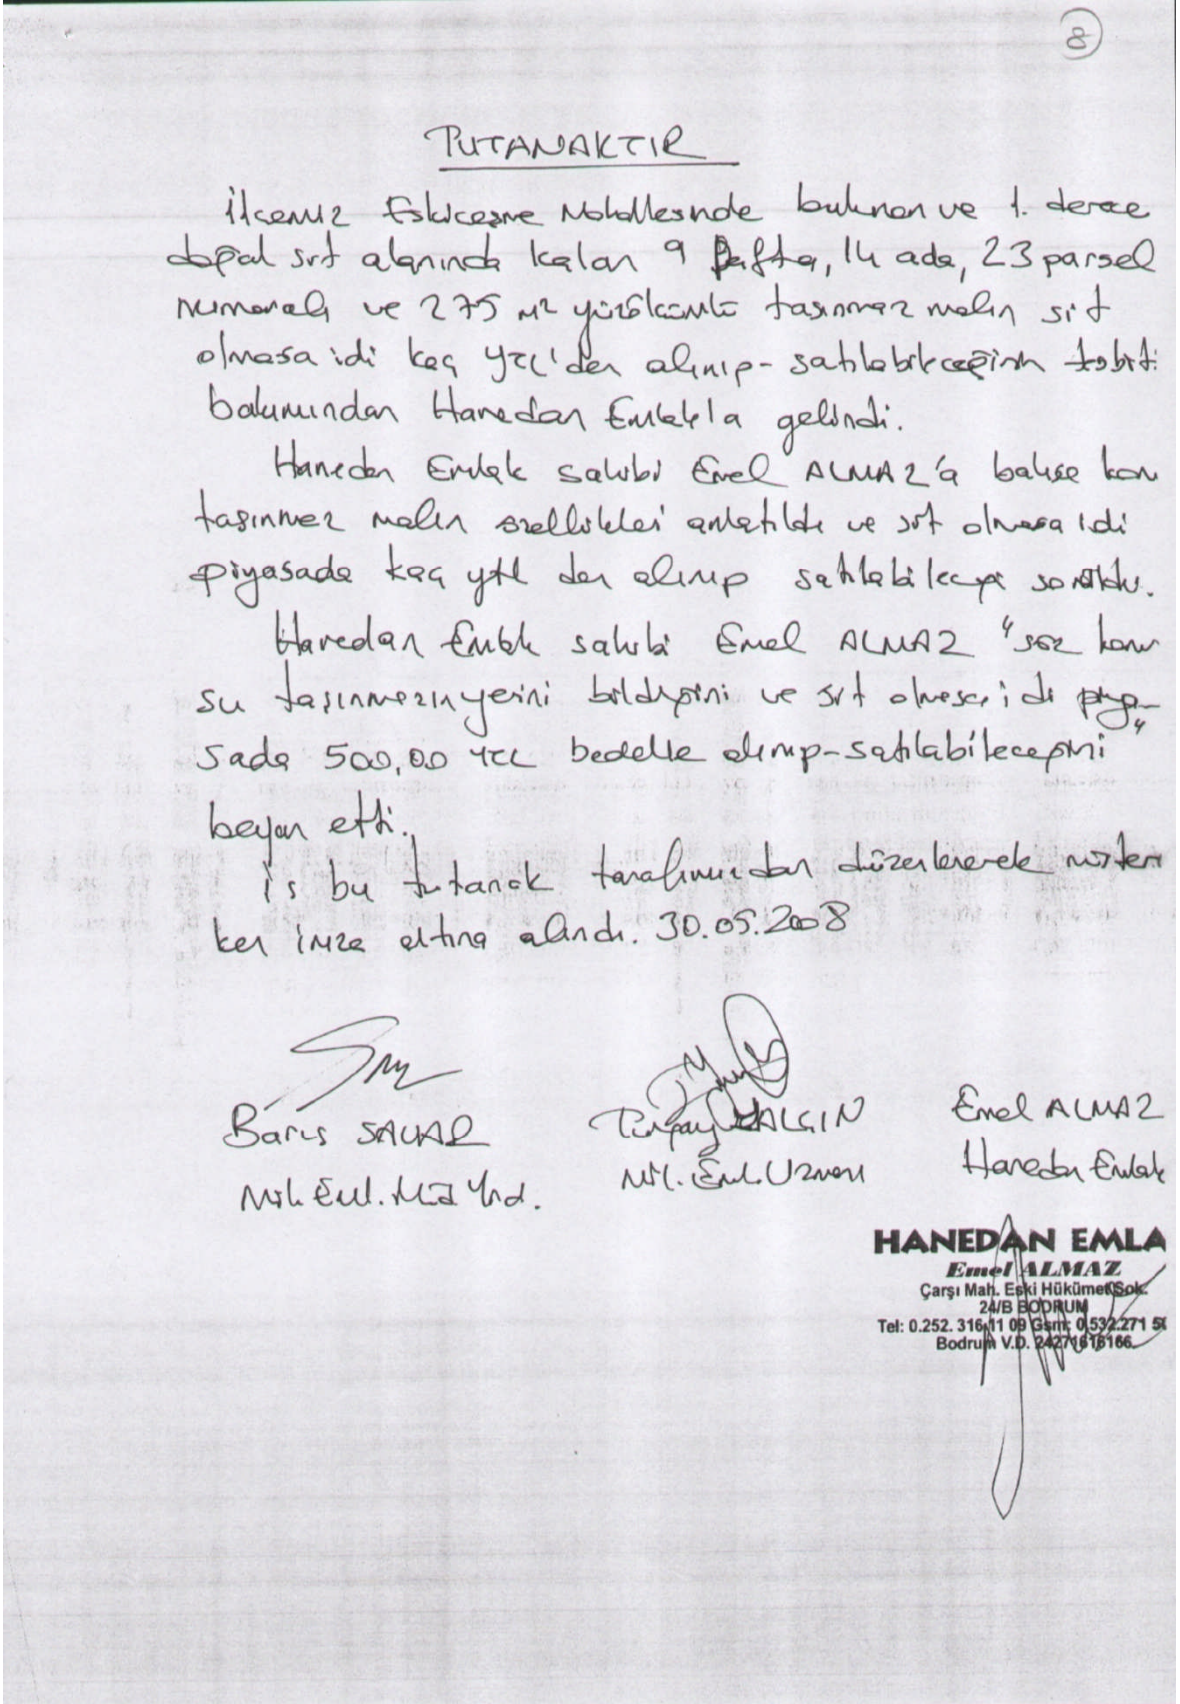 8
TUTANAKTIR
İlçemiz Eskiçeşme Mahallesinde bulunan ve 1. derece
doğal sit alanında kalan 9 Pafta, 14 ada, 23 parsel
numaralı ve 275 m² yüzölçümlü taşınmaz malın sit
olmasa idi kaç YTL'den alınıp-satılabileceğinin tesbiti
bakımından Hanedan Emlak'a gelindi.
Hanedan Emlak sahibi Emel ALMAZ'a bahse konu
taşınmaz malın özellikleri anlatıldı ve sit olmasa idi
piyasada kaç ytl den alınıp satılabileceği soruldu.
Hanedan Emlak sahibi Emel ALMAZ "söz konu
su taşınmazın yerini bildiğini ve sit olmasa idi piya-
sada 500,00 YTL bedelle alınıp-satılabileceğini"
beyan etti.
İş bu tutanak tarafımızdan düzenlenerek müşte­re­
ken imza altına alındı. 30.05.2008
Barış SAVAR Turgay YALÇIN Emel ALMAZ
Mil. Eml. Md Yrd. Mil. Eml. Uzmanı Hanedan Emlak
HANEDAN EMLA
Emel ALMAZ
Çarşı Mah. Eski Hükümet Sok.
24/B BODRUM
Tel: 0.252. 316 11 09 Gsm: 0.532.271 5
Bodrum V.D. 24271616166